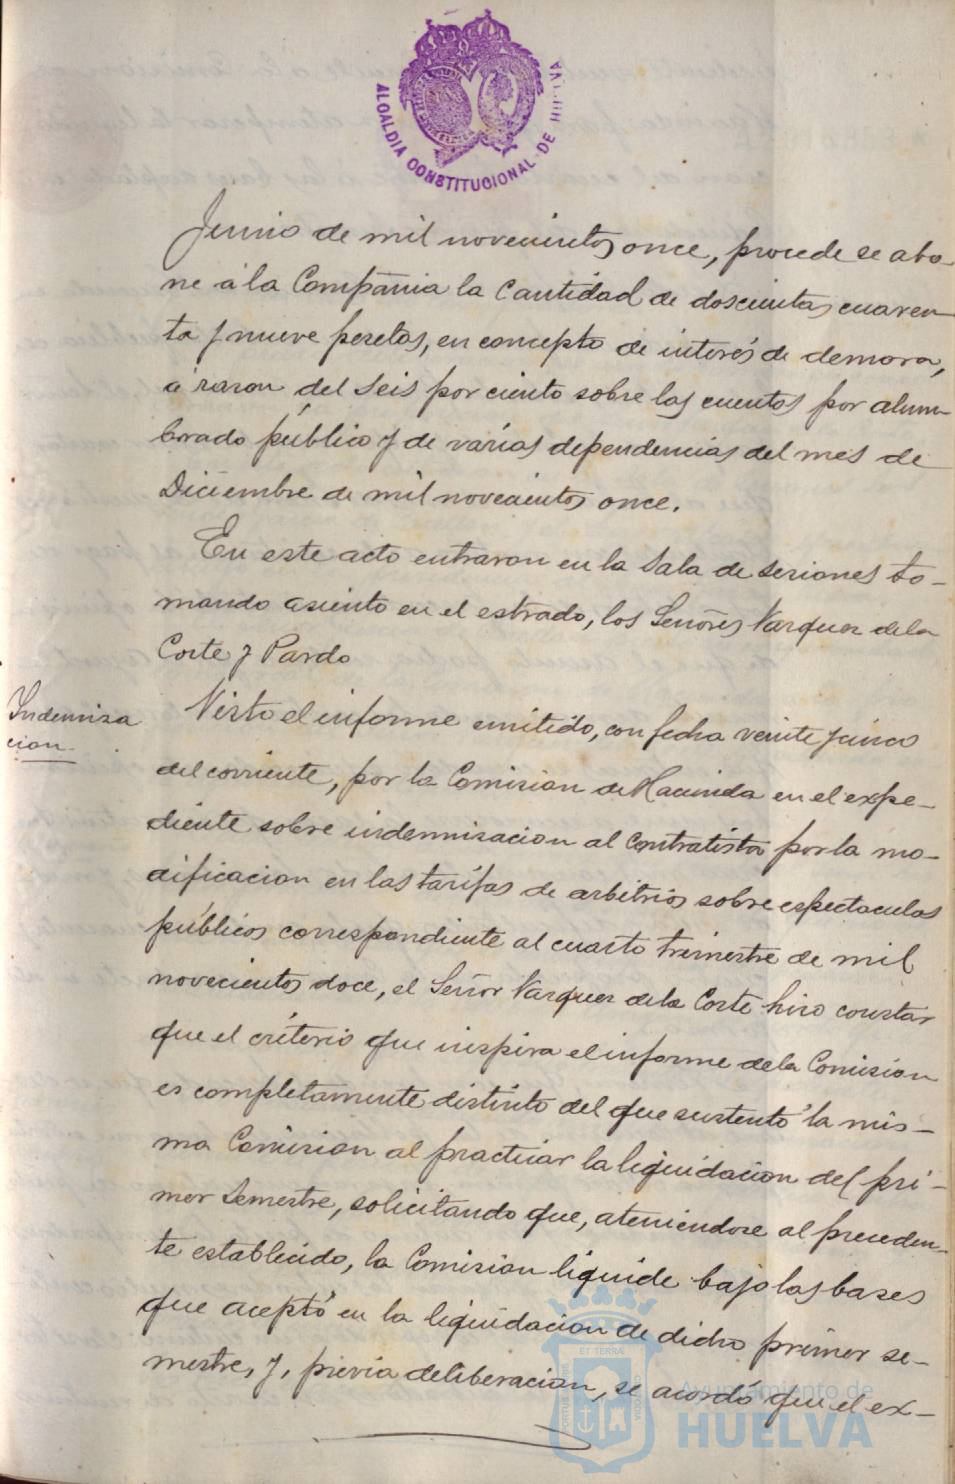 ALCALDIA CONSTITUCIONAL DE HUELVA
Junio de mil novecientos once, procede se abo-
ne á la Compañia la cantidad de doscientas cuaren
ta y nueve pesetas, en concepto de interés de demora,
á razon del seis por ciento sobre las cuentas por alum
brado público y de varias dependencias del mes de
Diciembre de mil novecientos once.
En este acto entraron en la Sala de sesiones to-
mando asiento en el estrado, los Señores Vazquez de la
Corte y Pardo
Indemniza
cion
Visto el informe emitido, con fecha veinte y cinco
del corriente, por la Comision de Hacienda en el expe-
diente sobre indemnizacion al contratista por la mo-
dificacion en las tarifas de arbitrios sobre espectaculos
públicos correspondiente al cuarto trimestre de mil
novecientos doce, el Señor Vazquez de la Corte hizo constar
que el criterio que inspira el informe de la Comision
es completamente distinto del que sustentó la mis-
ma Comision al practicar la liquidacion del pri-
mer Semestre, solicitando que, ateniendose al preceden-
te establecido, la Comision liquide bajo las bases
que aceptó en la liquidacion de dicho primer se-
mestre, y, previa deliberacion, se acordó que el ex-
ET TERRA
Ayuntamiento de
HUELVA